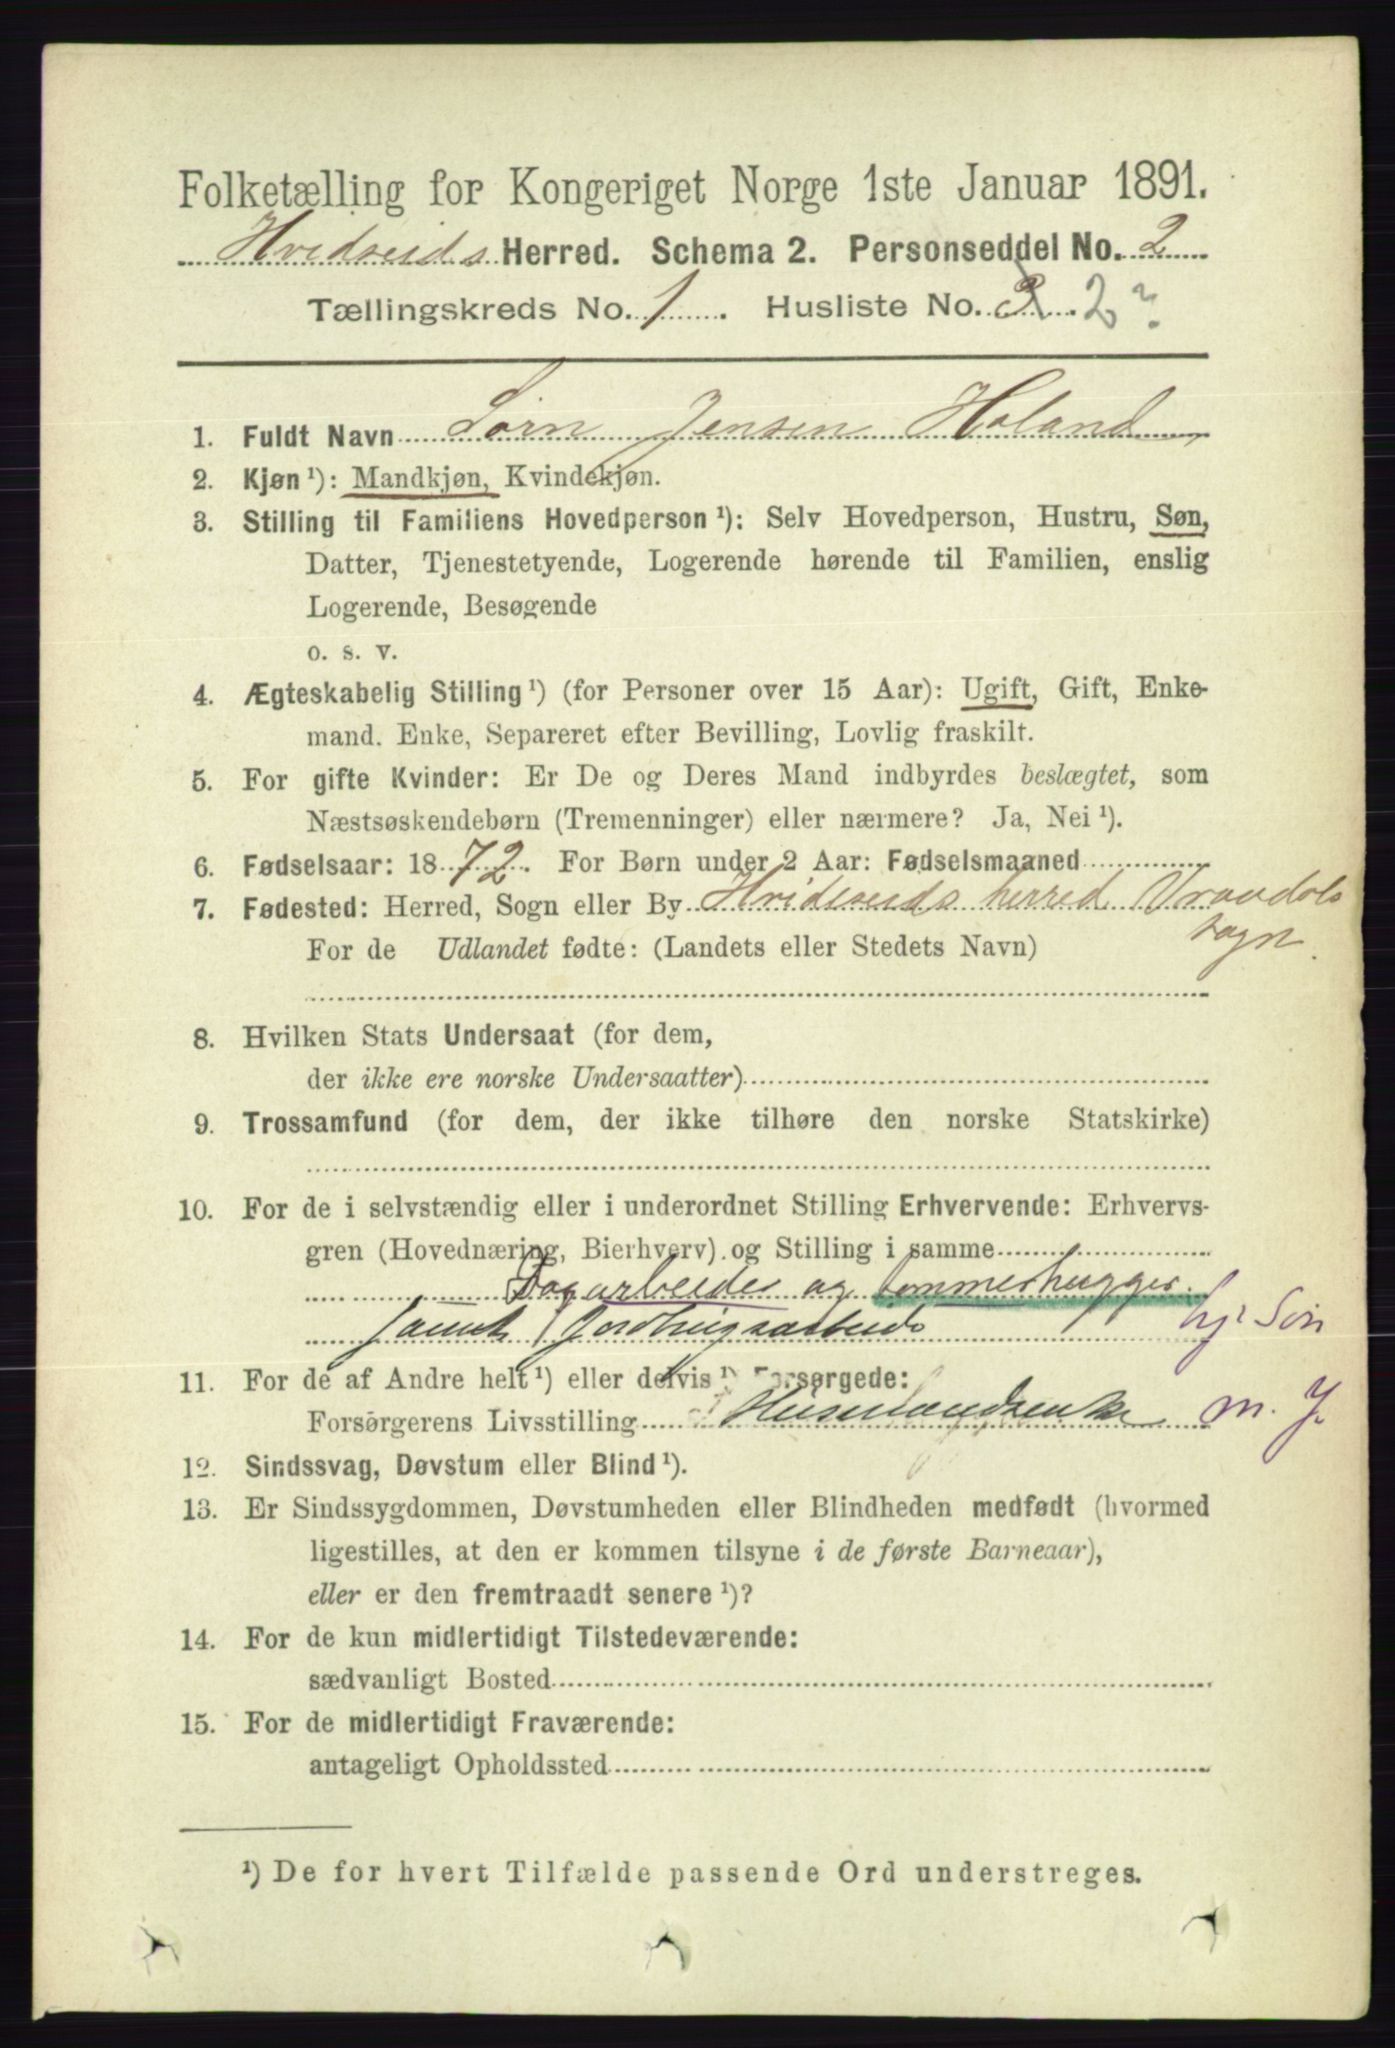 Folketælling for Kongeriget Norge 1ste Januar 1891.
Hvidseids Herred. Schema 2. Personseddel No. 2
Tællingskreds No. 1. Husliste No. 3. 2?
1. Fuldt Navn Sørn Jensen Holand
2. Kjøn ¹): Mandkjøn, Kvindekjøn.
3. Stilling til Familiens Hovedperson ¹): Selv Hovedperson, Hustru, Søn,
Datter, Tjenestetyende, Logerende hørende til Familien, enslig
Logerende, Besøgende
o. s. v.
4. Ægteskabelig Stilling ¹) (for Personer over 15 Aar): Ugift, Gift, Enke-
mand. Enke, Separeret efter Bevilling, Lovlig fraskilt.
5. For gifte Kvinder: Er De og Deres Mand indbyrdes beslægtet, som
Næstsøskendebørn (Tremenninger) eller nærmere? Ja, Nei ¹).
6. Fødselsaar: 1872. For Børn under 2 Aar: Fødselsmaaned
7. Fødested: Herred, Sogn eller By Hvideseids herred Vraadals
sogn.
For de Udlandet fødte: (Landets eller Stedets Navn)
8. Hvilken Stats Undersaat (for dem,
der ikke ere norske Undersaatter)
9. Trossamfund (for dem, der ikke tilhøre den norske Statskirke)
10. For de i selvstændig eller i underordnet Stilling Erhvervende: Erhvervs-
gren (Hovednæring, Bierhverv) og Stilling i samme
Dagarbeider og tommerhugger
samt Jordbrugsarbeide hj. Søn
11. For de af Andre helt ¹) eller delvis ¹) Forsørgede:
Forsørgerens Livsstilling Husmandsenke m. J.
12. Sindssvag, Døvstum eller Blind ¹).
13. Er Sindssygdommen, Døvstumheden eller Blindheden medfødt (hvormed
ligestilles, at den er kommen tilsyne i de første Barneaar),
eller er den fremtraadt senere ¹)?
14. For de kun midlertidigt Tilstedeværende:
sædvanligt Bosted
15. For de midlertidigt Fraværende:
antageligt Opholdssted
¹) De for hvert Tilfælde passende Ord understreges.